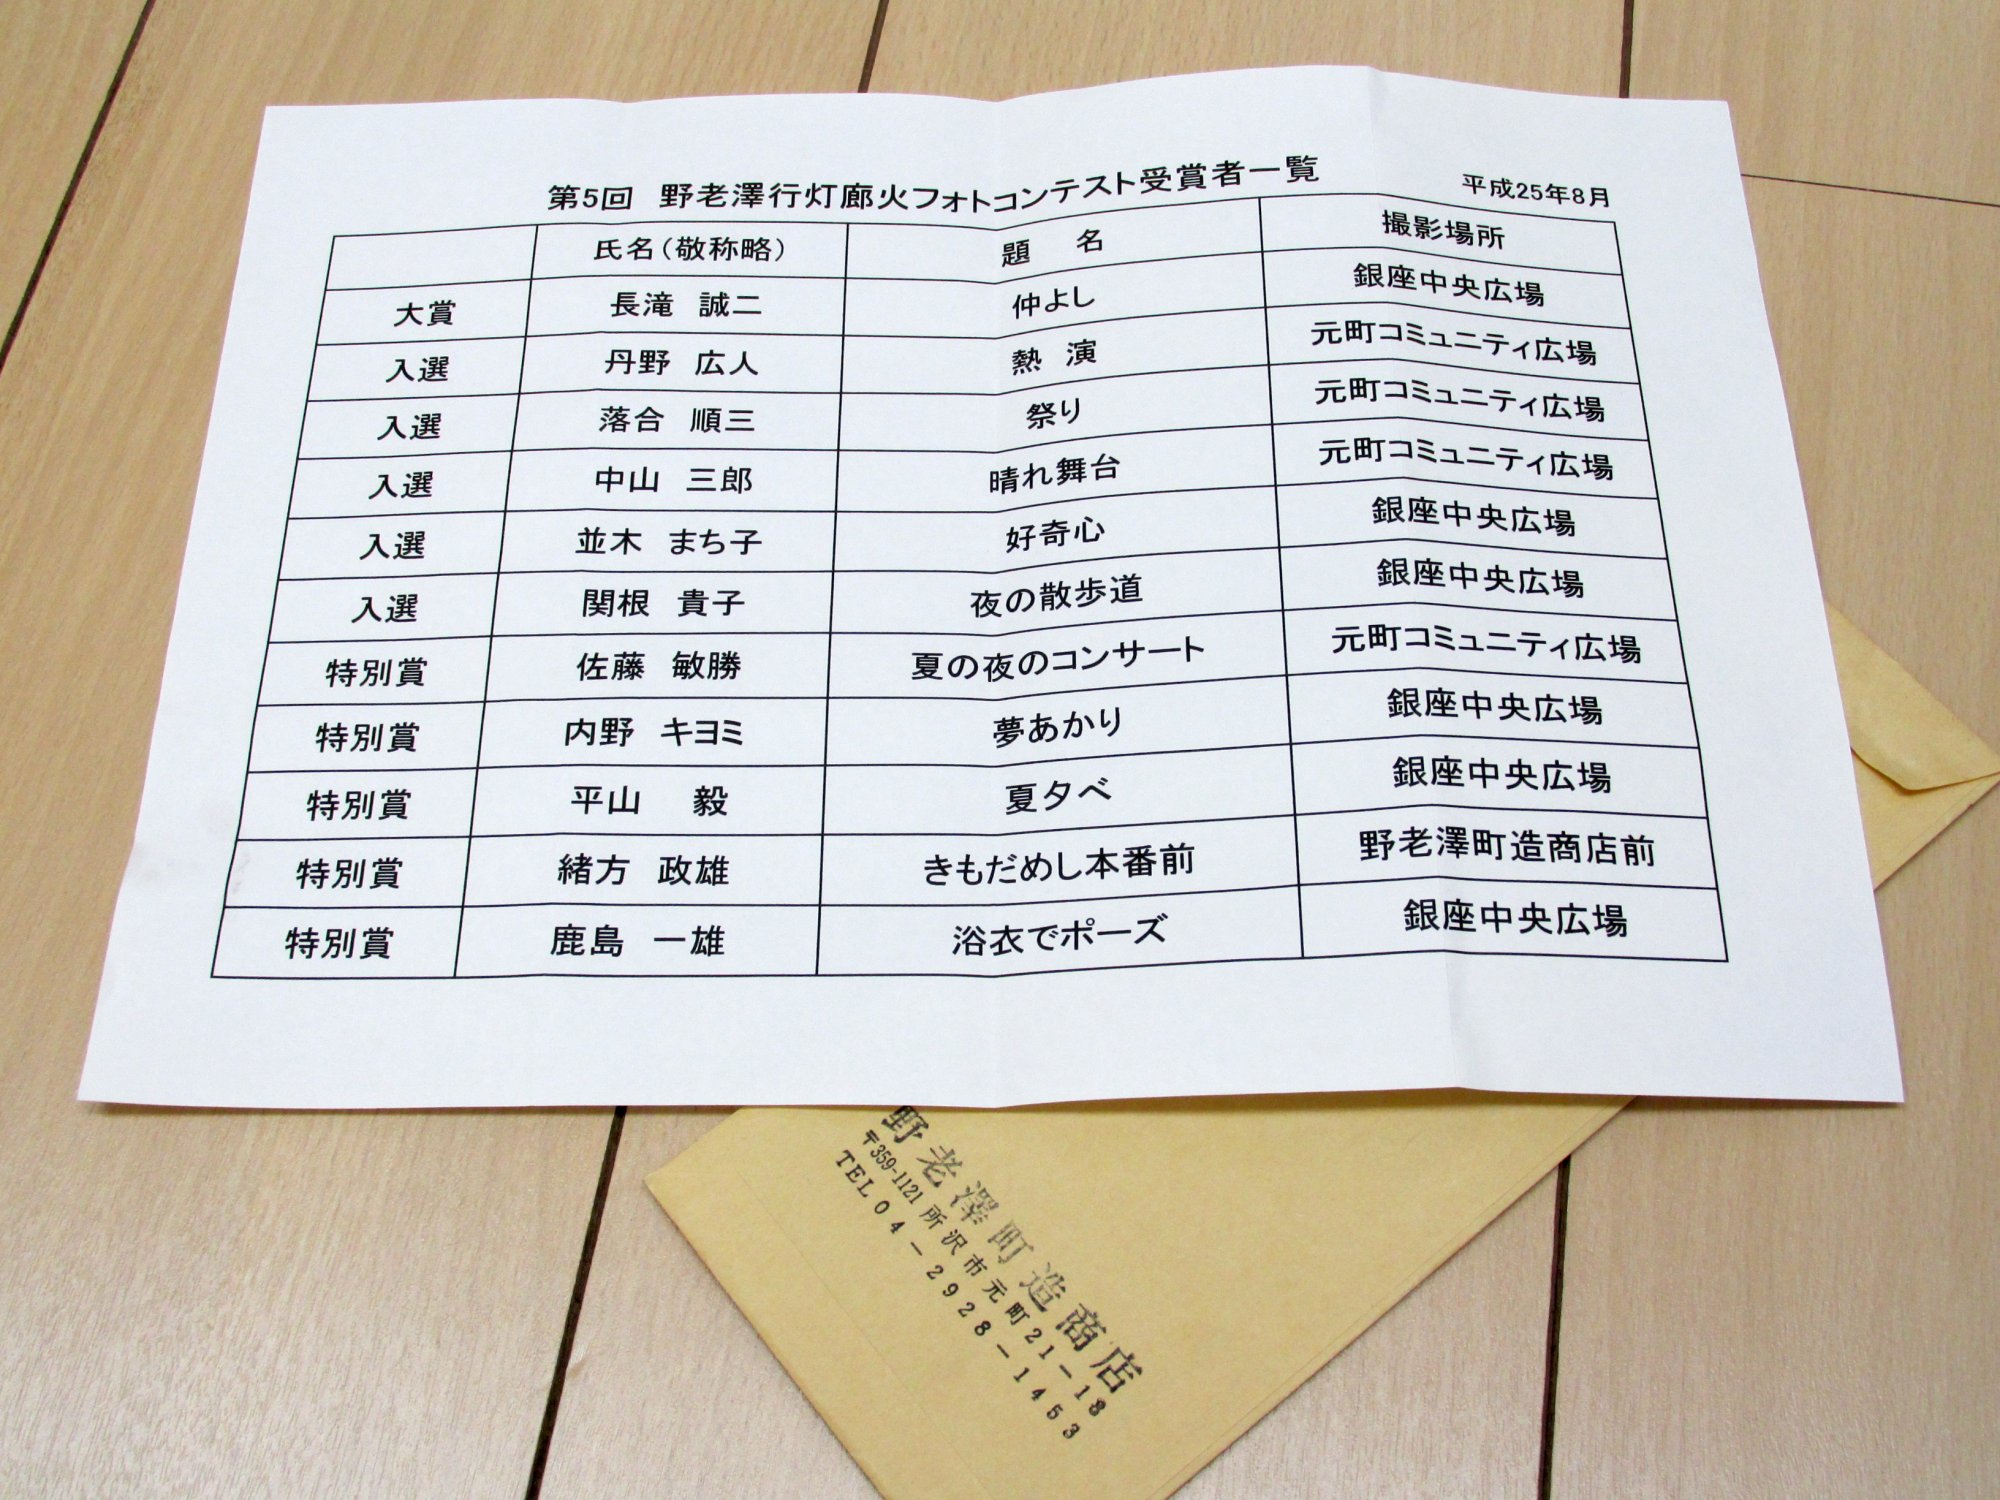 第5回 野老澤行灯廊火フォトコンテスト受賞者一覧
平成25年8月
氏名(敬称略) 題 名 撮影場所
大賞 長滝 誠二 仲よし 銀座中央広場
入選 丹野 広人 熱 演 元町コミュニティ広場
入選 落合 順三 祭り 元町コミュニティ広場
入選 中山 三郎 晴れ舞台 元町コミュニティ広場
入選 並木 まち子 好奇心 銀座中央広場
入選 関根 貴子 夜の散歩道 銀座中央広場
特別賞 佐藤 敏勝 夏の夜のコンサート 元町コミュニティ広場
特別賞 内野 キヨミ 夢あかり 銀座中央広場
特別賞 平山 毅 夏夕べ 銀座中央広場
特別賞 緒方 政雄 きもだめし本番前 野老澤町造商店前
特別賞 鹿島 一雄 浴衣でポーズ 銀座中央広場
野老澤町造商店
〒359-1121 所沢市元町21-18
TEL04-2928-1453